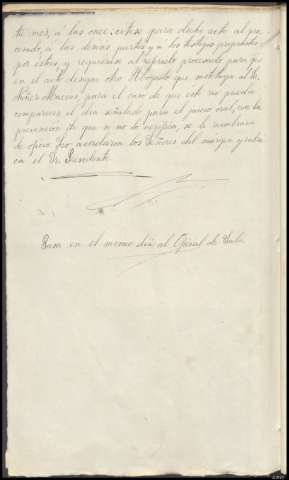 te mes, á las once; citese para dicho acto al pro-
cesado, á las demás partes y á los testigos propuestos
por estas, y requierase al referido procesado para que
en el acto designe otro Abogado que sustituya al Sr.
Nuñez Mazias para el caso de que este no pueda
comparecer el dia señalado para el juicio oral, con la
prevencion de que si no lo verifica, se le nombrará
de oficio. Lo acordaron los Señores del margen y rubrica
el Sr. Presidente.
Pasa en el mismo dia al Oficial de Sala